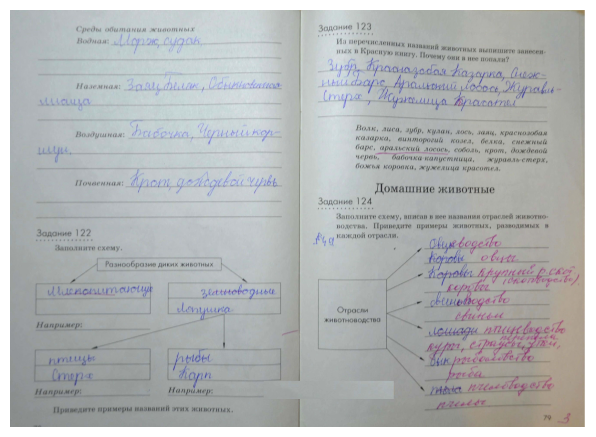 Среды обитания животных
Водная: Морж, судак
Наземная: Заяц Беляк, Обыкновенная
лисица
Воздушная: Бабочка, Чёрный кор-
шун.
Почвенная: Крот, дождевой червь
Задание 122
Заполните схему.
Разнообразие диких животных
Млекопитающие
земноводные
Лягушка
Например:
птицы
Стерх
рыбы
Карп
Например:
Например:
Приведите примеры названий этих животных.
Задание 123
Из перечисленных названий животных выпишите занесен-
ных в Красную книгу. Почему они в нее попали?
Зубр, Краснозобая Казарка, Снеж-
ный барс, Аральский лосось, Журавль-
Стерх, Жужелица Красотел
Волк, лиса, зубр, кулан, лось, заяц, краснозобая
казарка, винторогий козел, белка, снежный
барс, аральский лосось, соболь, крот, дождевой
червь, бабочка-капустница, журавль-стерх,
божья коровка, жужелица красотел.
Домашние животные
Задание 124
Заполните схему, вписав в нее названия отраслей животно-
водства. Приведите примеры животных, разводимых в
каждой отрасли.
Отрасли
животноводства
Овцеводство
Коровы овцы
Коровы крупный р. скот
коровы (скотоводство).
свиноводство
свиньи
лошади птицеводство
куры, страусы, утки,
рыбоводство
рыба
пчеловодство
пчелы
79
3